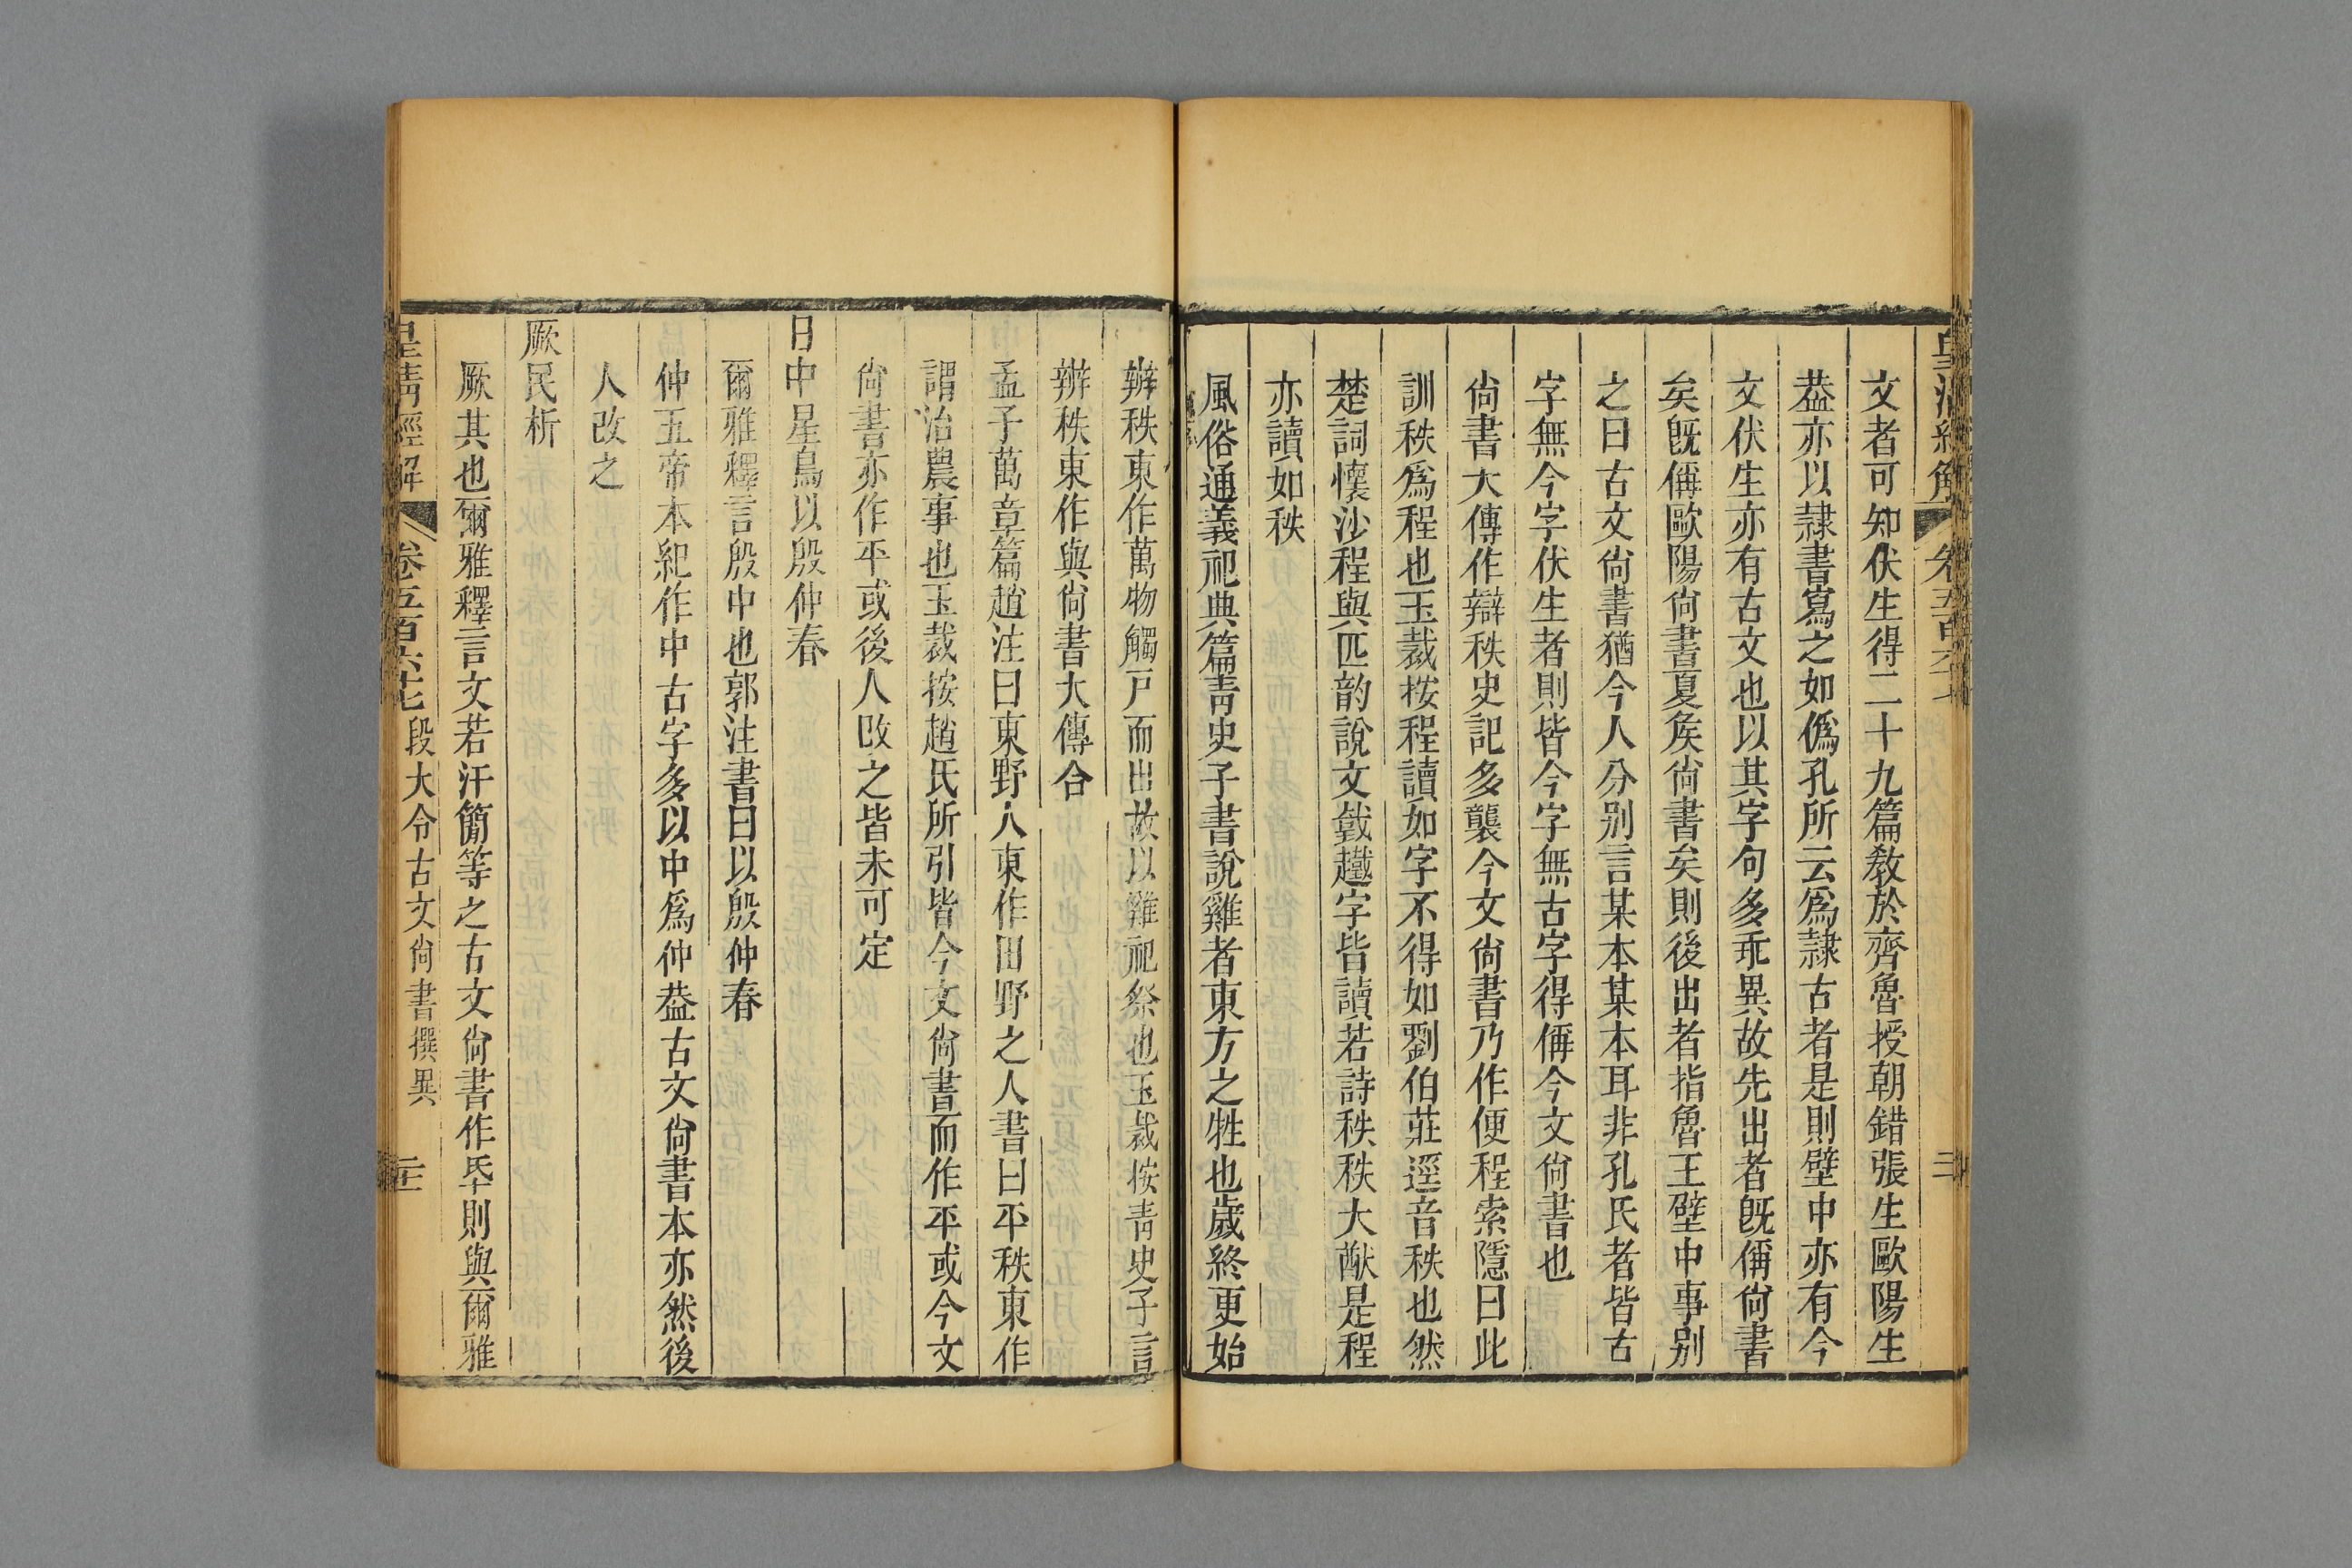 皇清經解
卷五百六十七
文者可知伏生得二十九篇敎於齊魯授朝錯張生歐陽生
葢亦以隷書寫之如僞孔所云爲隷古者是則壁中亦有今
文伏生亦有古文也以其字句多乖異故先出者旣偁尙書
矣旣偁歐陽尙書夏矦尙書矣則後出者指魯王壁中事别
之曰古文尙書猶今人分别言某本某本耳非孔氏者皆古
字無今字伏生者則皆今字無古字得偁今文尙書也
尙書大傳作辯秩史記多襲今文尙書乃作便程索隱曰此
訓秩爲程也玉裁按程讀如字不得如劉伯莊逕音秩也然
楚詞懷沙程與匹韵說文㦶䟫字皆讀若詩秩秩大猷是程
亦讀如秩
風俗通義祀典篇靑史子書說雞者東方之牲也歲終更始
辨秩東作萬物觸戸而出故以雞祀祭也玉裁按靑史子言
辨秩東作與尙書大傳合
孟子萬章篇趙注曰東野人東作田野之人書曰平秩東作
謂治農事也玉裁按趙氏所引皆今文尙書而作平或今文
尙書亦作平或後人改之皆未可定
日中星鳥以殷仲春
爾雅釋言殷中也郭注書曰以殷仲春
仲五帝本紀作中古字多以中爲仲葢古文尙書本亦然後
人改之
厥民析
厥其也爾雅釋言文若汗簡等之古文尙書作氒則與爾雅
皇清經解
卷五百六十七
段大令古文尙書撰異
二十